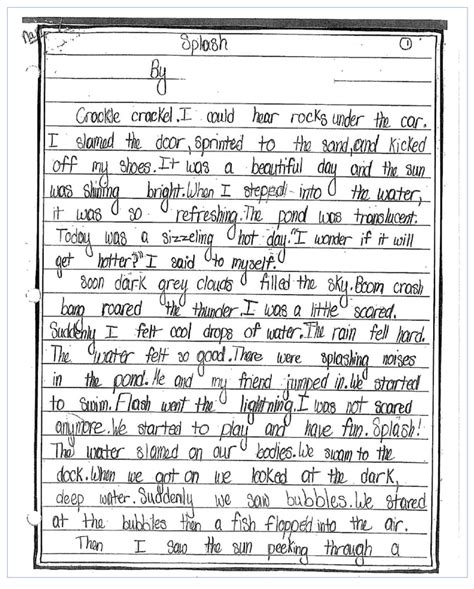 Splash
1
By
Crackle crackel. I could hear rocks under the car.
I slamed the door, sprinted to the sand, and kicked
off my shoes. It was a beautiful day and the sun
was shining bright. When I steped into the water,
it was so refreshing. The pond was translucent.
Today was a sizzeling hot day. "I wonder if it will
get hotter?" I said to myself.
soon dark grey clouds filled the sky. Boom crash
bang roared the thunder. I was a little scared.
Suddenly I felt cool drops of water. The rain fell hard.
The water felt so good. There were splashing noises
in the pond. Me and my friend jumped in. We started
to swim. Flash went the lightning. I was not scared
anymore. We started to play and have fun. Splash!
The water slamed on our bodies. We swam to the
dock. When we got on we looked at the dark,
deep water. Suddenly we saw bubbles. We stared
at the bubbles then a fish flopped into the air.
Then I saw the sun peeking through a